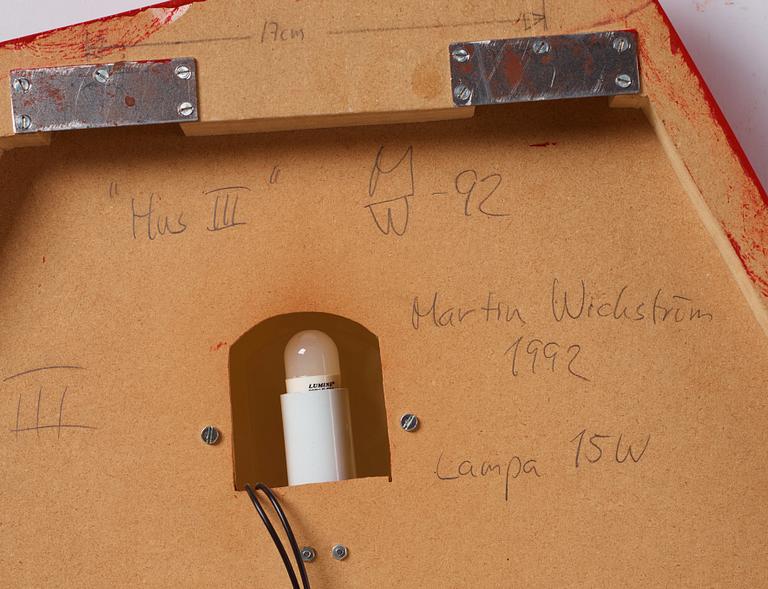 17cm
"Hus III"
M
W -92
Martin Wickström
1992
LUMINE
III
Lampa 15W